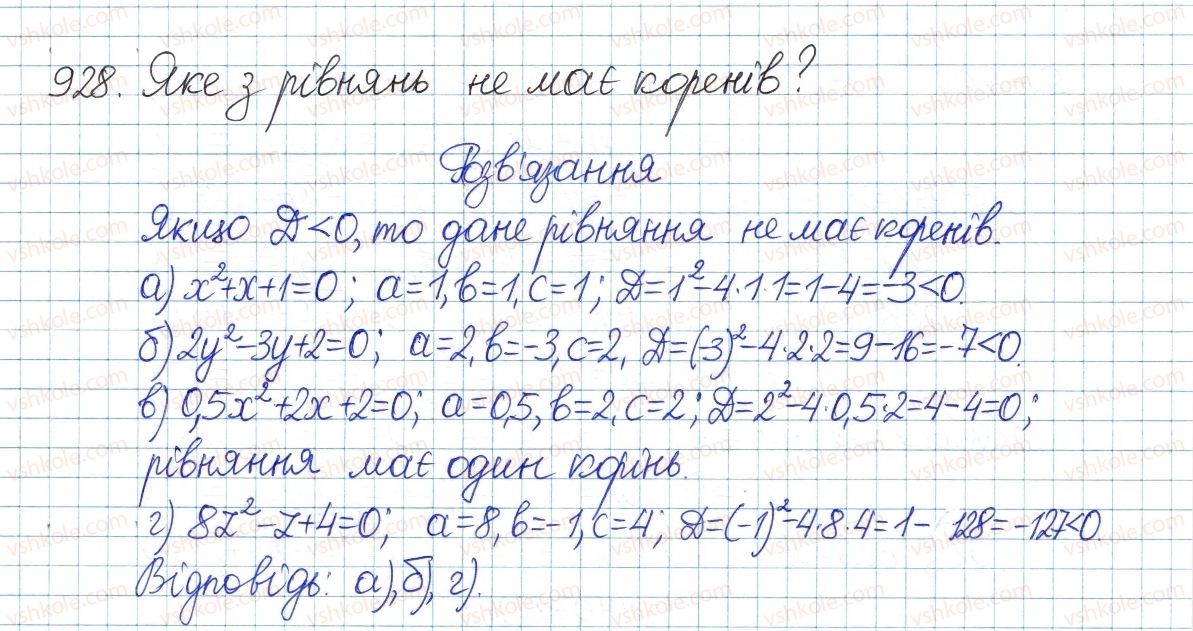 928. Яке з рівнянь не має коренів?
Розв'язання
Якщо D<0, то дане рівняння не має коренів.
а) x²+x+1=0; a=1, b=1, c=1; D=1²-4·1·1=1-4=-3<0.
б) 2y²-3y+2=0; a=2, b=-3, c=2, D=(-3)²-4·2·2=9-16=-7<0.
в) 0,5x²+2x+2=0; a=0,5, b=2, c=2; D=2²-4·0,5·2=4-4=0;
рівняння має один корінь.
г) 8z²-z+4=0; a=8, b=-1, c=4; D=(-1)²-4·8·4=1-128=-127<0.
Відповідь: а), б), г).